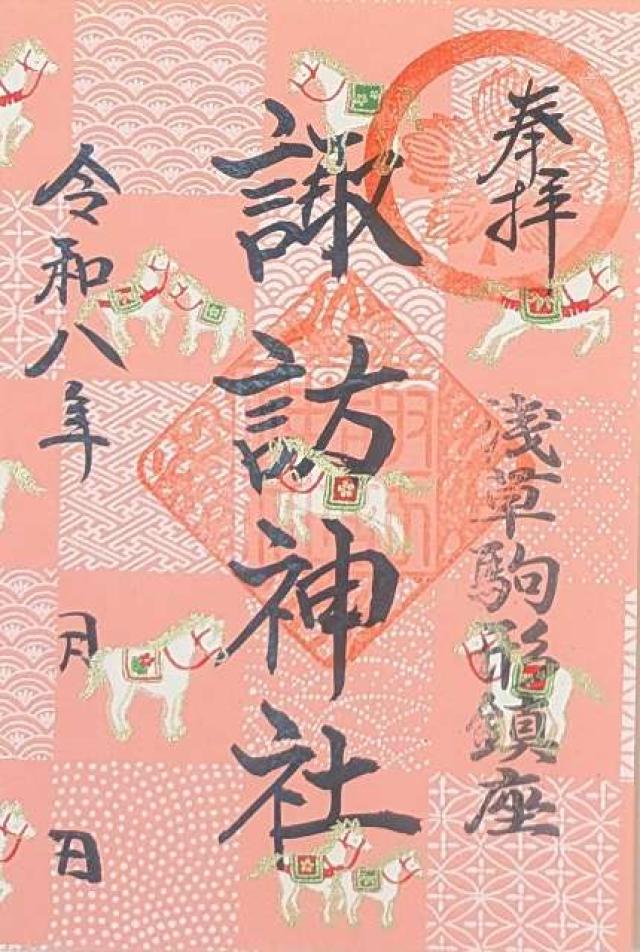 奉拝
浅草駒形鎮座
諏訪神社
令和八年
月
日